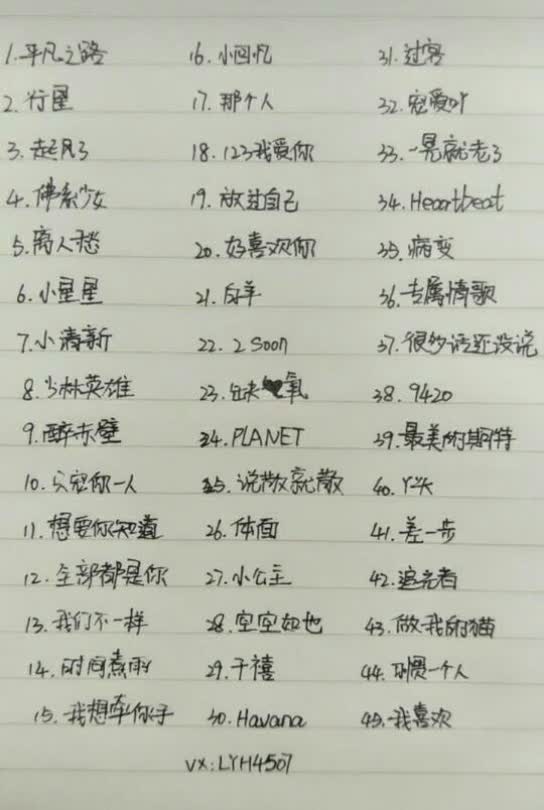 1.平凡之路
2.行星
3.起风了
4.佛系少女
5.离人愁
6.小星星
7.小清新
8.少林英雄
9.醉赤壁
10.只宠你一人
11.想要你知道
12.全部都是你
13.我们不一样
14.时间煮雨
15.我想牵你手
16.小回忆
17.那个人
18.123我爱你
19.放过自己
20.好喜欢你
21.白羊
22.2 Soon
23.缺氧
24.PLANET
25.说散就散
26.体面
27.小公主
28.空空如也
29.千禧
30.Havana
31.过客
32.宠爱吖
33.一晃就老了
34.Heartbeat
35.病变
36.专属情歌
37.很多话还没说
38.9420
39.最美的期待
40.丫头
41.差一步
42.追光者
43.做我的猫
44.习惯一个人
45.我喜欢
vx:LYH4507